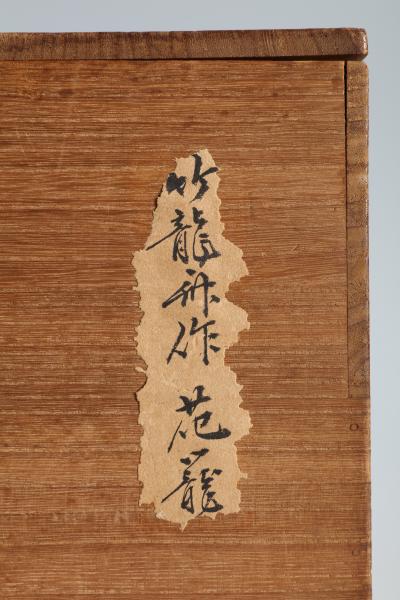 竹龍斎作 花籠